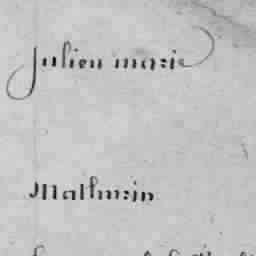 Julien marie
Mathurin